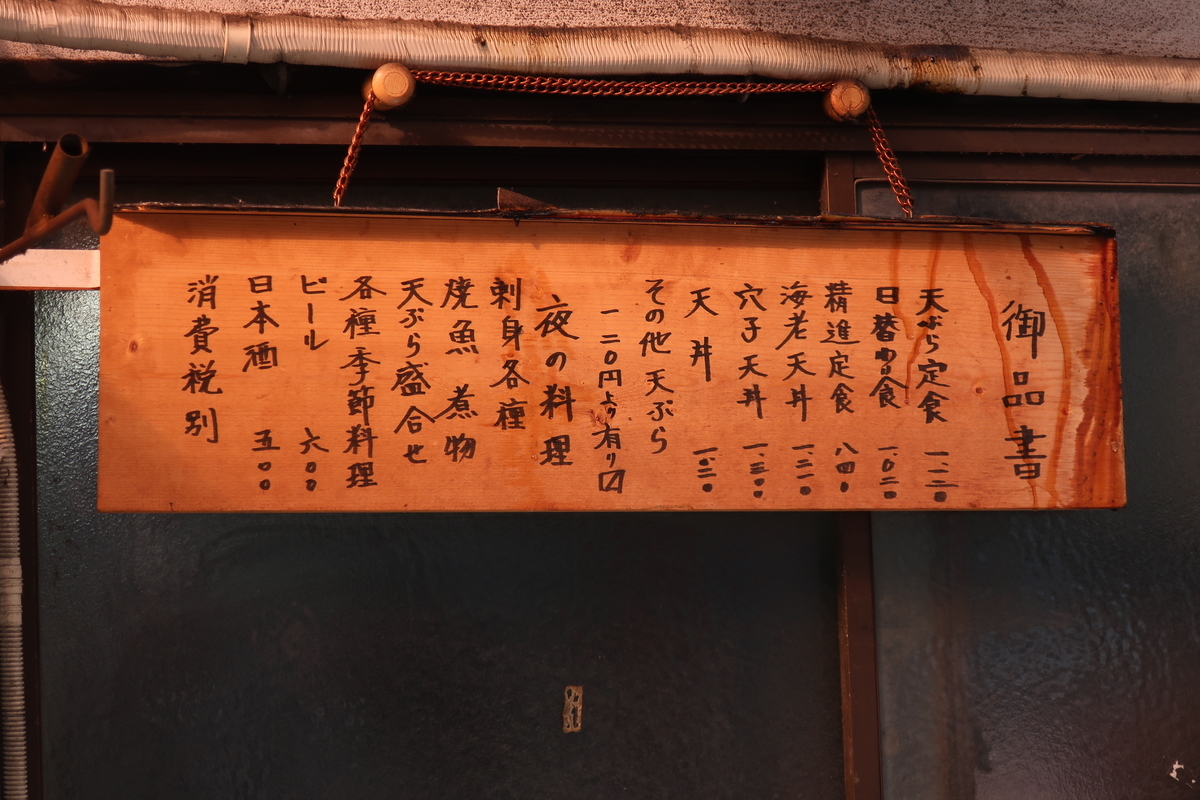 御品書
天ぷら定食 一、一二〇
日替り定食 一、〇二〇
精進定食 八四〇
海老天丼 一、二一〇
穴子天丼 一、三〇〇
天丼 一、〇二〇
その他天ぷら
一二〇円より有り〼
夜の料理
刺身各種
焼魚 煮物
天ぷら盛合せ
各種季節料理
ビール 六〇〇
日本酒 五〇〇
消費税別